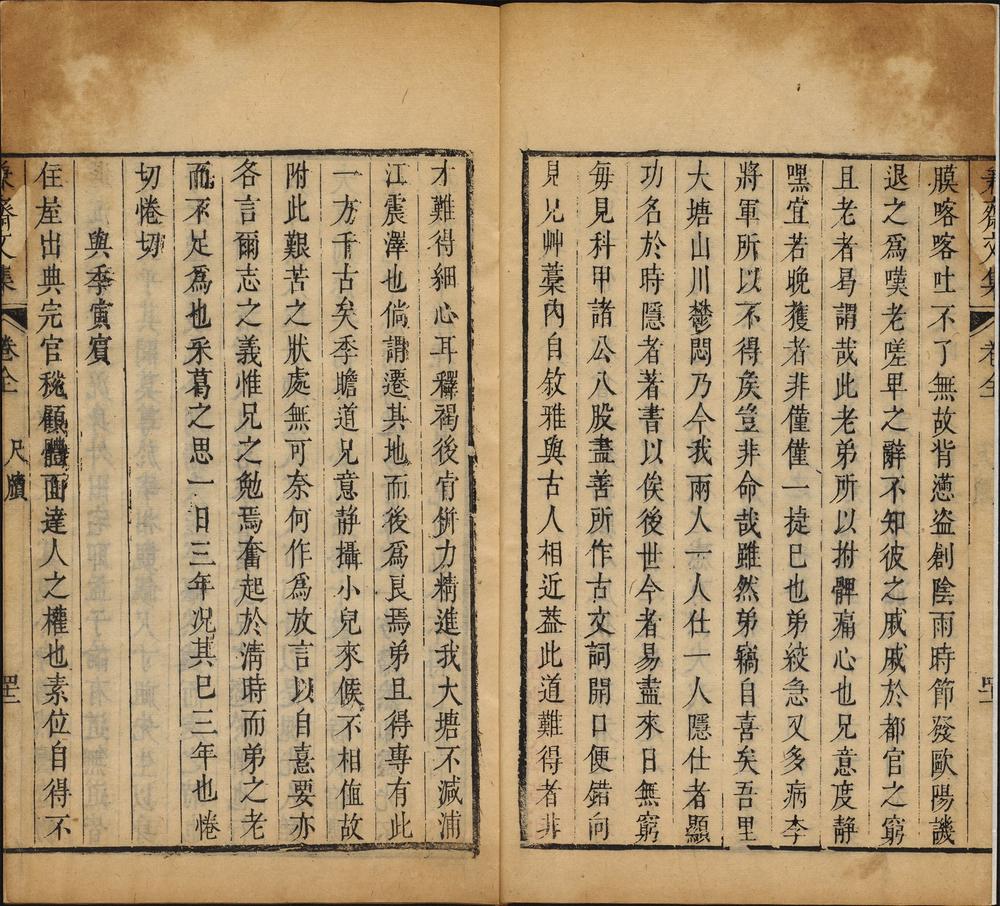 齋文集 卷全
膜喀喀吐不了無故背懣盗創陰雨時節發歐陽譏
退之爲嘆老嗟卑之辭不知彼之戚戚於都官之窮
且老者曷謂哉此老弟所以拊髀痛心也兄意度靜
嘿宜若晚獲者非僅僅一㨗已也弟絞急又多病李
將軍所以不得矦豈非命哉雖然弟竊自喜矣吾里
大塘山川鬱悶乃今我兩人一人仕一人隱仕者顯
功名於時隱者著書以俟後世今者易盡來日無窮
每見科甲諸公八股盡善所作古文詞開口便錯向
見兄艸藁內自敘雅與古人相近葢此道難得者非
才難得細心耳釋褐後肯併力精進我大塘不減浦
江震澤也倘謂遷其地而後爲良焉弟且得專有此
一方千古矣季瞻道兄意靜攝小兒來候不相值故
附此艱苦之狀處無可奈何作爲放言以自憙要亦
各言爾志之義惟兄之勉焉奮起於淸時而弟之老
而不足爲也釆葛之思一日三年况其已三年也惓
切惓切
與季寅賓
住屋出典完官稅顧體面達人之權也素位自得不
齋文集 卷全 尺牘